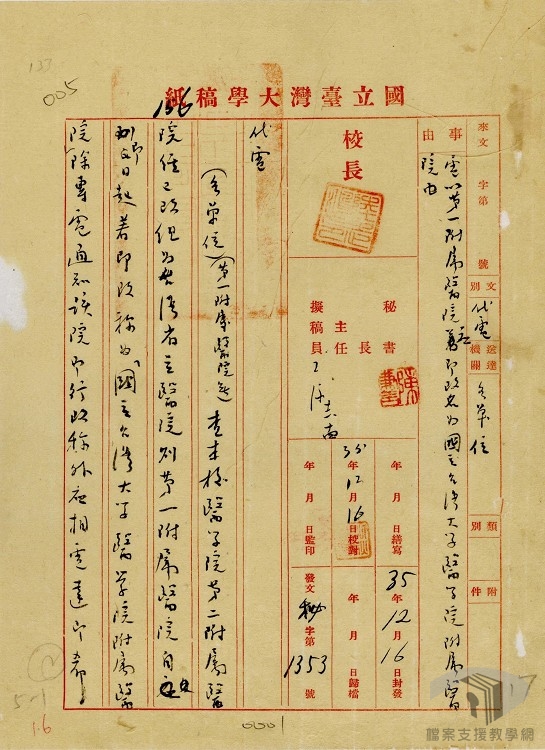 137
005
國立臺灣大學稿紙
136
事由
電以第一附屬醫院着即改名為國立台灣大學醫學院附屬醫
院由
來文 字第 號
文別 代電
送達機關 各單位
類別
附件
校長
秘書
主任
擬稿員
年 月 日繕寫
35年12月16日校對
年 月 日監印
35年12月16日封發
年 月 日歸檔
發文 秘字第1353號
代電
(各單位)(第一附屬醫院並)查本校醫學院第二附屬醫
院經已改組為台灣省立醫院則第一附屬醫院自應
即日起着即改稱為國立台灣大學醫學院附屬醫
院除專電通知該院即行改稱外應相電達即希
5-1
16
0001
17
檔案支援教學網